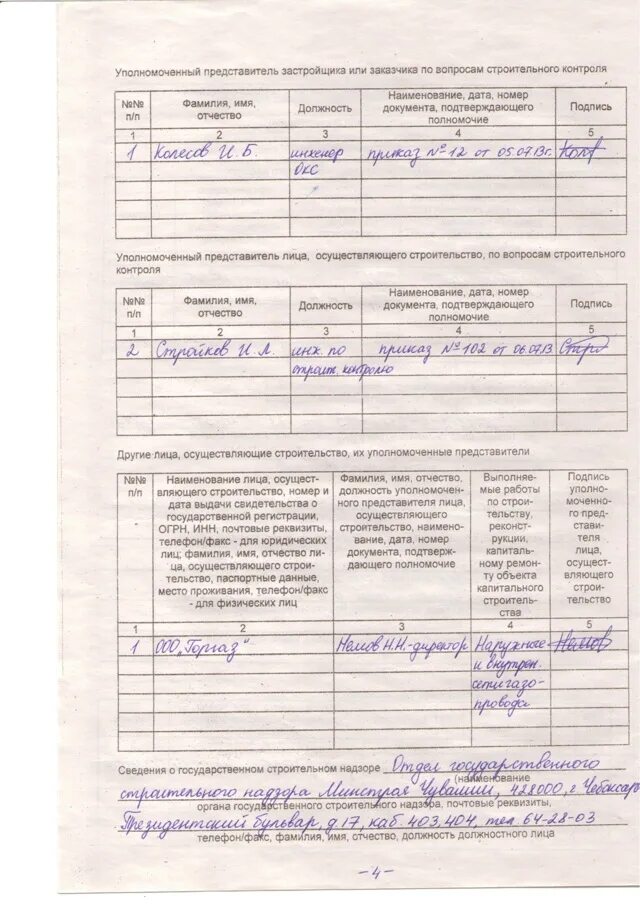 Уполномоченный представитель застройщика или заказчика по вопросам строительного контроля
№№ п/п
Фамилия, имя, отчество
Должность
Наименование, дата, номер документа, подтверждающего полномочие
Подпись
1 2 3 4 5
1 Колесов И. Б. инженер приказ № 12 от 05.07.13г.
ОКС
Уполномоченный представитель лица, осуществляющего строительство, по вопросам строительного
контроля
№№ п/п
Фамилия, имя, отчество
Должность
Наименование, дата, номер документа, подтверждающего полномочие
Подпись
1 2 3 4 5
2 Стройков И. А. инж. по приказ № 102 от 06.07.13 Стро
строит. контролю
Другие лица, осуществляющие строительство, их уполномоченные представители
№№
п/п
Наименование лица, осущест-
вляющего строительство, номер и
дата выдачи свидетельства о
государственной регистрации,
ОГРН, ИНН, почтовые реквизиты,
телефон/факс - для юридических
лиц; фамилия, имя, отчество ли-
ца, осуществляющего строи-
тельство, паспортные данные,
место проживания, телефон/факс
- для физических лиц
Фамилия, имя, отчество,
должность уполномочен-
ного представителя лица,
осуществляющего
строительство, наимено-
вание, дата, номер
документа, подтверж-
дающего полномочие
Выполняе-
мые работы
по строи-
тельству,
реконст-
рукции,
капиталь-
ному ремон-
ту объекта
капитального
строитель-
ства
Подпись
уполно-
моченно-
го пред-
стави-
теля
лица,
осущест-
вляющего
строи-
тельство
1 2 3 4 5
1 ООО „Горгаз" Немов Н.Н.-директор Наружные Немов
и внутрен.
сети газо-
провода
Сведения о государственном строительном надзоре Отдел государственного
(наименование
строительного надзора Минстроя Чувашии, 428000, г. Чебоксары
органа государственного строительного надзора, почтовые реквизиты,
Президентский бульвар, д.17, каб. 403,404, тел 64-28-03
телефон/факс, фамилия, имя, отчество, должность должностного лица
-4-